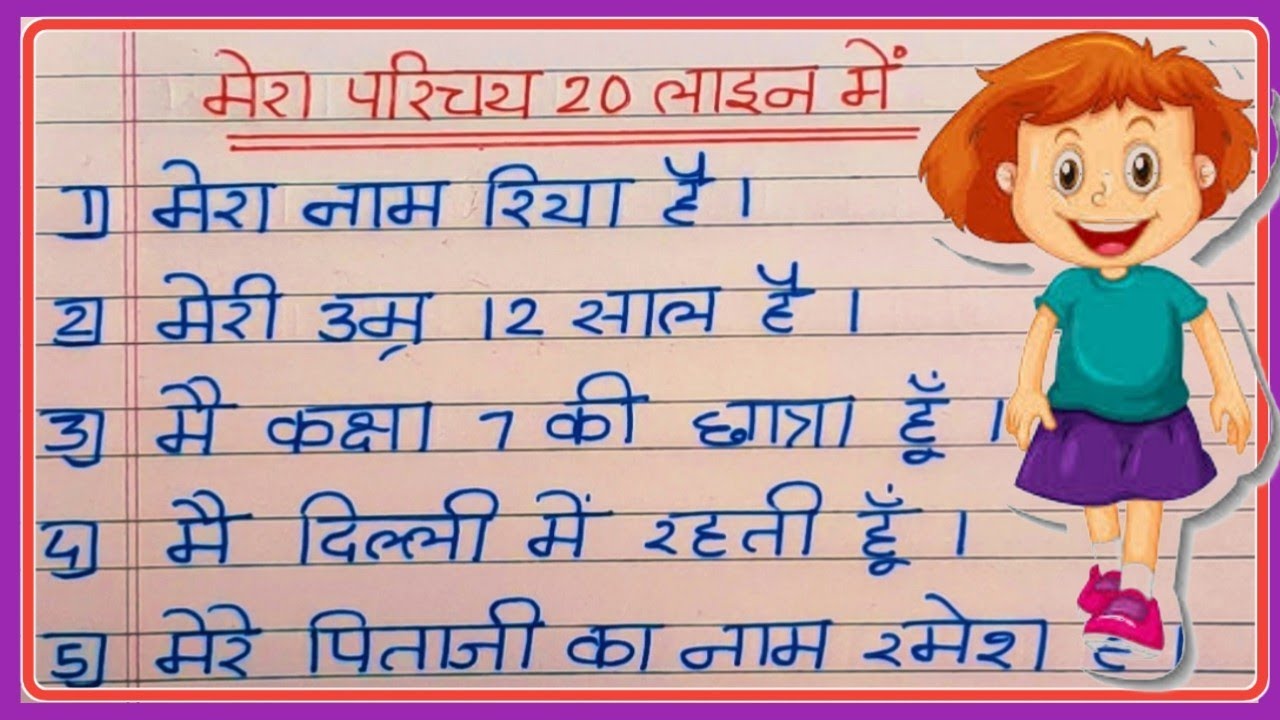 मेरा परिचय 20 लाइन में
1) मेरा नाम रिया है।
2) मेरी उम्र 12 साल है।
3) मै कक्षा 7 की छात्रा हूँ।
4) मै दिल्ली में रहती हूँ।
5) मेरे पिताजी का नाम रमेश है।